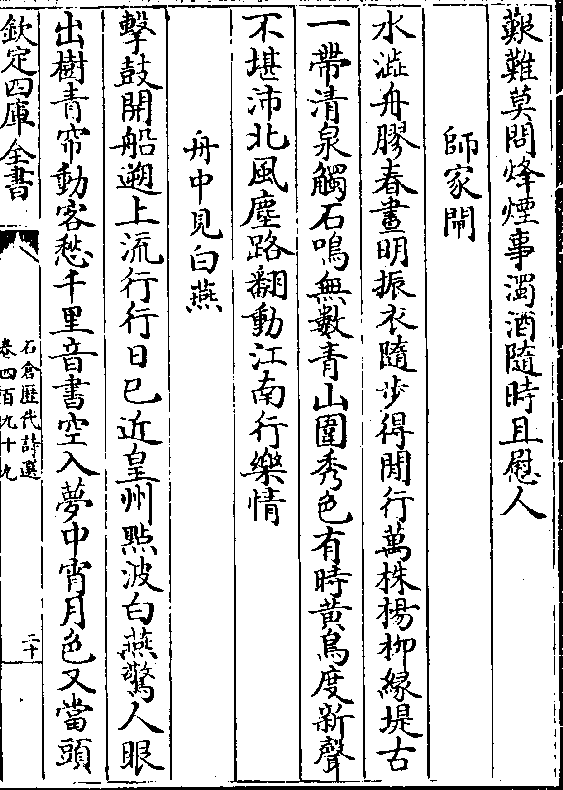 艱難莫問烽煙事濁酒隨時且慰人
師家閘
水澁舟膠春晝明振衣隨步得閒行萬株楊柳緣堤古
一帶清泉觸石鳴無數青山圍秀色有時黄鳥度新聲
不堪沛北風塵路翻動江南行樂情
舟中見白燕
擊鼓開船遡上流行行日已近皇州㸃波白燕驚人眼
出樹青帘動客愁千里音書空入夢中宵月色又當頭
欽定四庫全書
石倉歷代詩選
卷四百九十九
二十